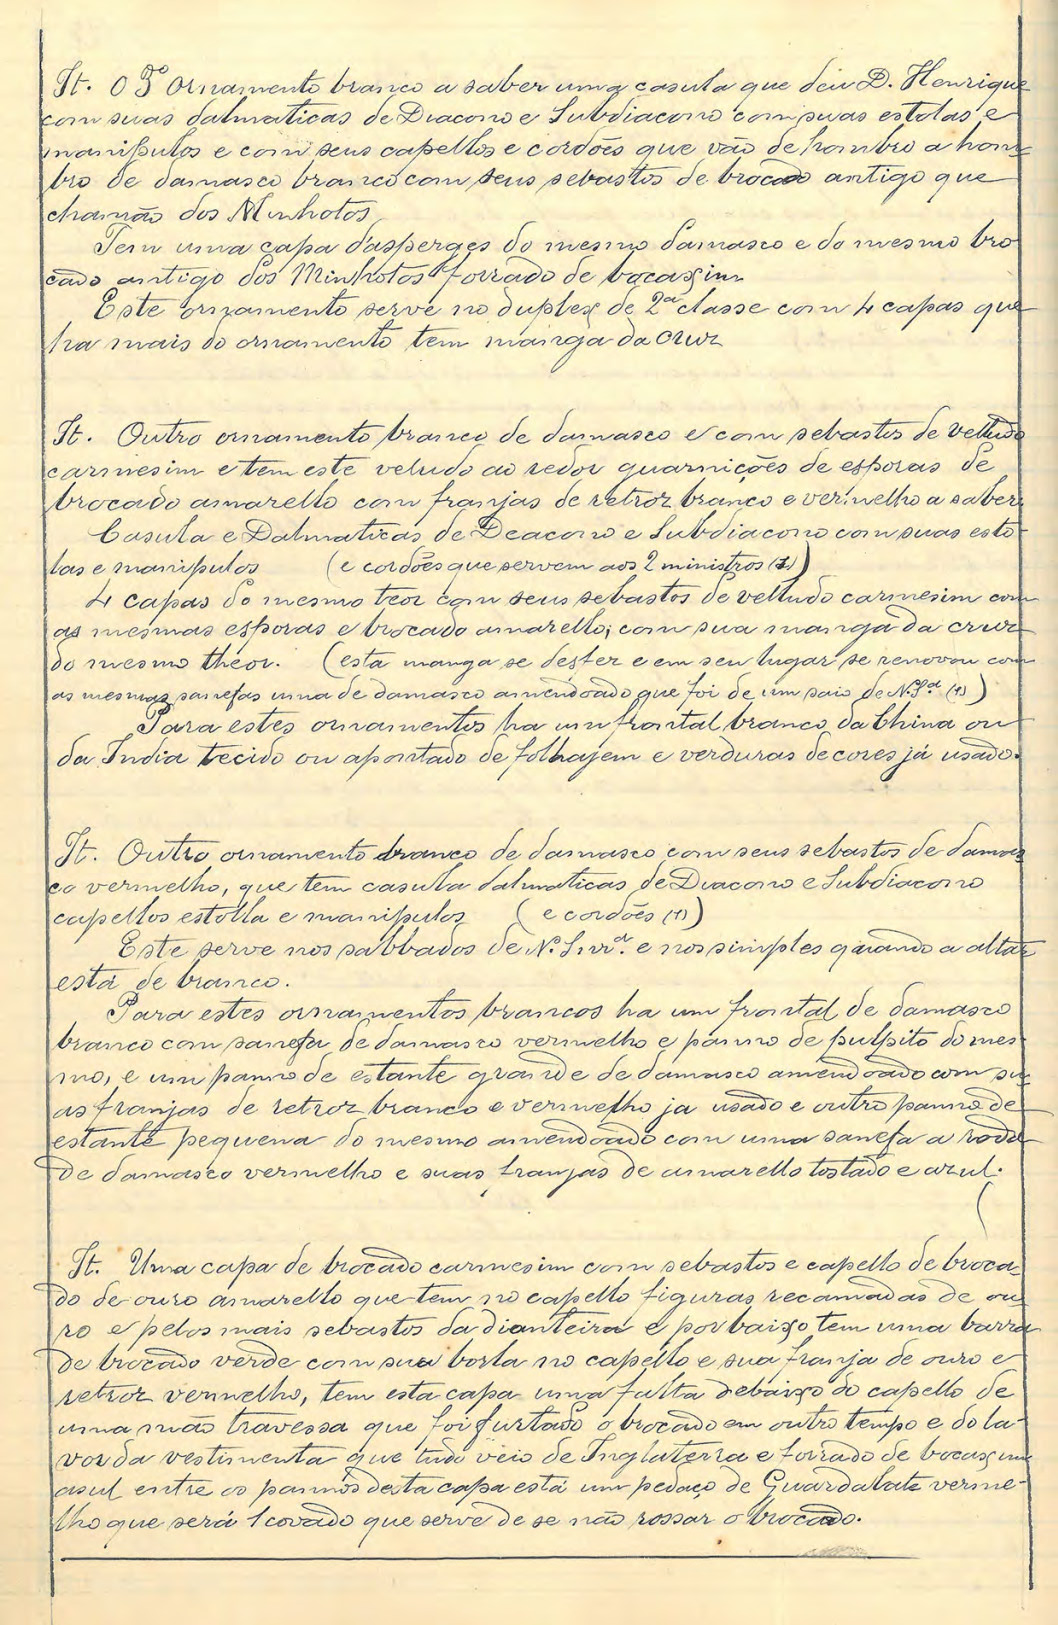 It. O 3º ornamento branco a saber uma casula que deu D. Henrique
com suas dalmaticas de Diacono e Subdiacono com suas estolas e
manipulos e com seus capellos e cordões que vão de hombro a hom-
bro de damasco branco com seus sebastos de brocado antigo que
chamão dos Minhotos
Tem uma capa d'asperges do mesmo damasco e do mesmo bro
cado antigo dos Minhotos forrado de bocaxim
Este ornamento serve no duplex de 2ª classe com 4 capas que
ha mais do ornamento tem manga da cruz
It. Outro ornamento branco de damasco e com sebastos de velludo
carmesim e tem este veludo ao redor guarnições de esporas de
brocado amarello com franjas de retroz branco e vermelho a saber
Casula e Dalmaticas de Deacono e Subdiacono com suas esto-
las e manipulos (e cordões que servem aos 2 ministros (1))
4 capas do mesmo teor com seus sebastos de velludo carmesim com
as mesmas esporas e brocado amarello; com sua manga da cruz
do mesmo theor. (esta manga se desfez e em seu lugar se renovou com
as mesmas sanefas uma de damasco amendoado que foi de um saio de N. Sª (1))
Para estes ornamentos ha um frontal branco da China ou
da India tecido ou apontado de folhajem e verduras de cores já usado.
It. Outro ornamento branco de damasco com seus sebastos de damas
co vermelho, que tem casula dalmaticas de Diacono e Subdiacono
capellos estolla e manipulos (e cordões (1))
Este serve nos sabbados de N. Snrª. e nos simples quando a altar
está de branco.
Para estes ornamentos brancos ha um frontal de damasco
branco com sanefa de damasco vermelho e panno de pulpito do mes-
mo, e um panno de estante grande de damasco amendoado com su-
as franjas de retroz branco e vermelho ja usado e outro panno de
estante pequena do mesmo amendoado com uma sanefa a roda
de damasco vermelho e suas franjas de amarello tostado e azul.
It. Uma capa de brocado carmesim com sebastos e capello de broca-
do de ouro amarello que tem no capello figuras recamadas de ou
ro e pelos mais sebastos da dianteira e por baixo tem uma barra
de brocado verde com sua borla no capello e sua franja de ouro e
retroz vermelho, tem esta capa uma falta debaixo do capello de
uma mão travessa que foi furtado o brocado em outro tempo e do la-
vor da vestimenta que tudo veio de Inglaterra e forrado de bocaxim
asul entre os pannos desta capa está um pedaço de Guardalate verme-
lho que será 1 covado que serve de se não rossar o brocado.